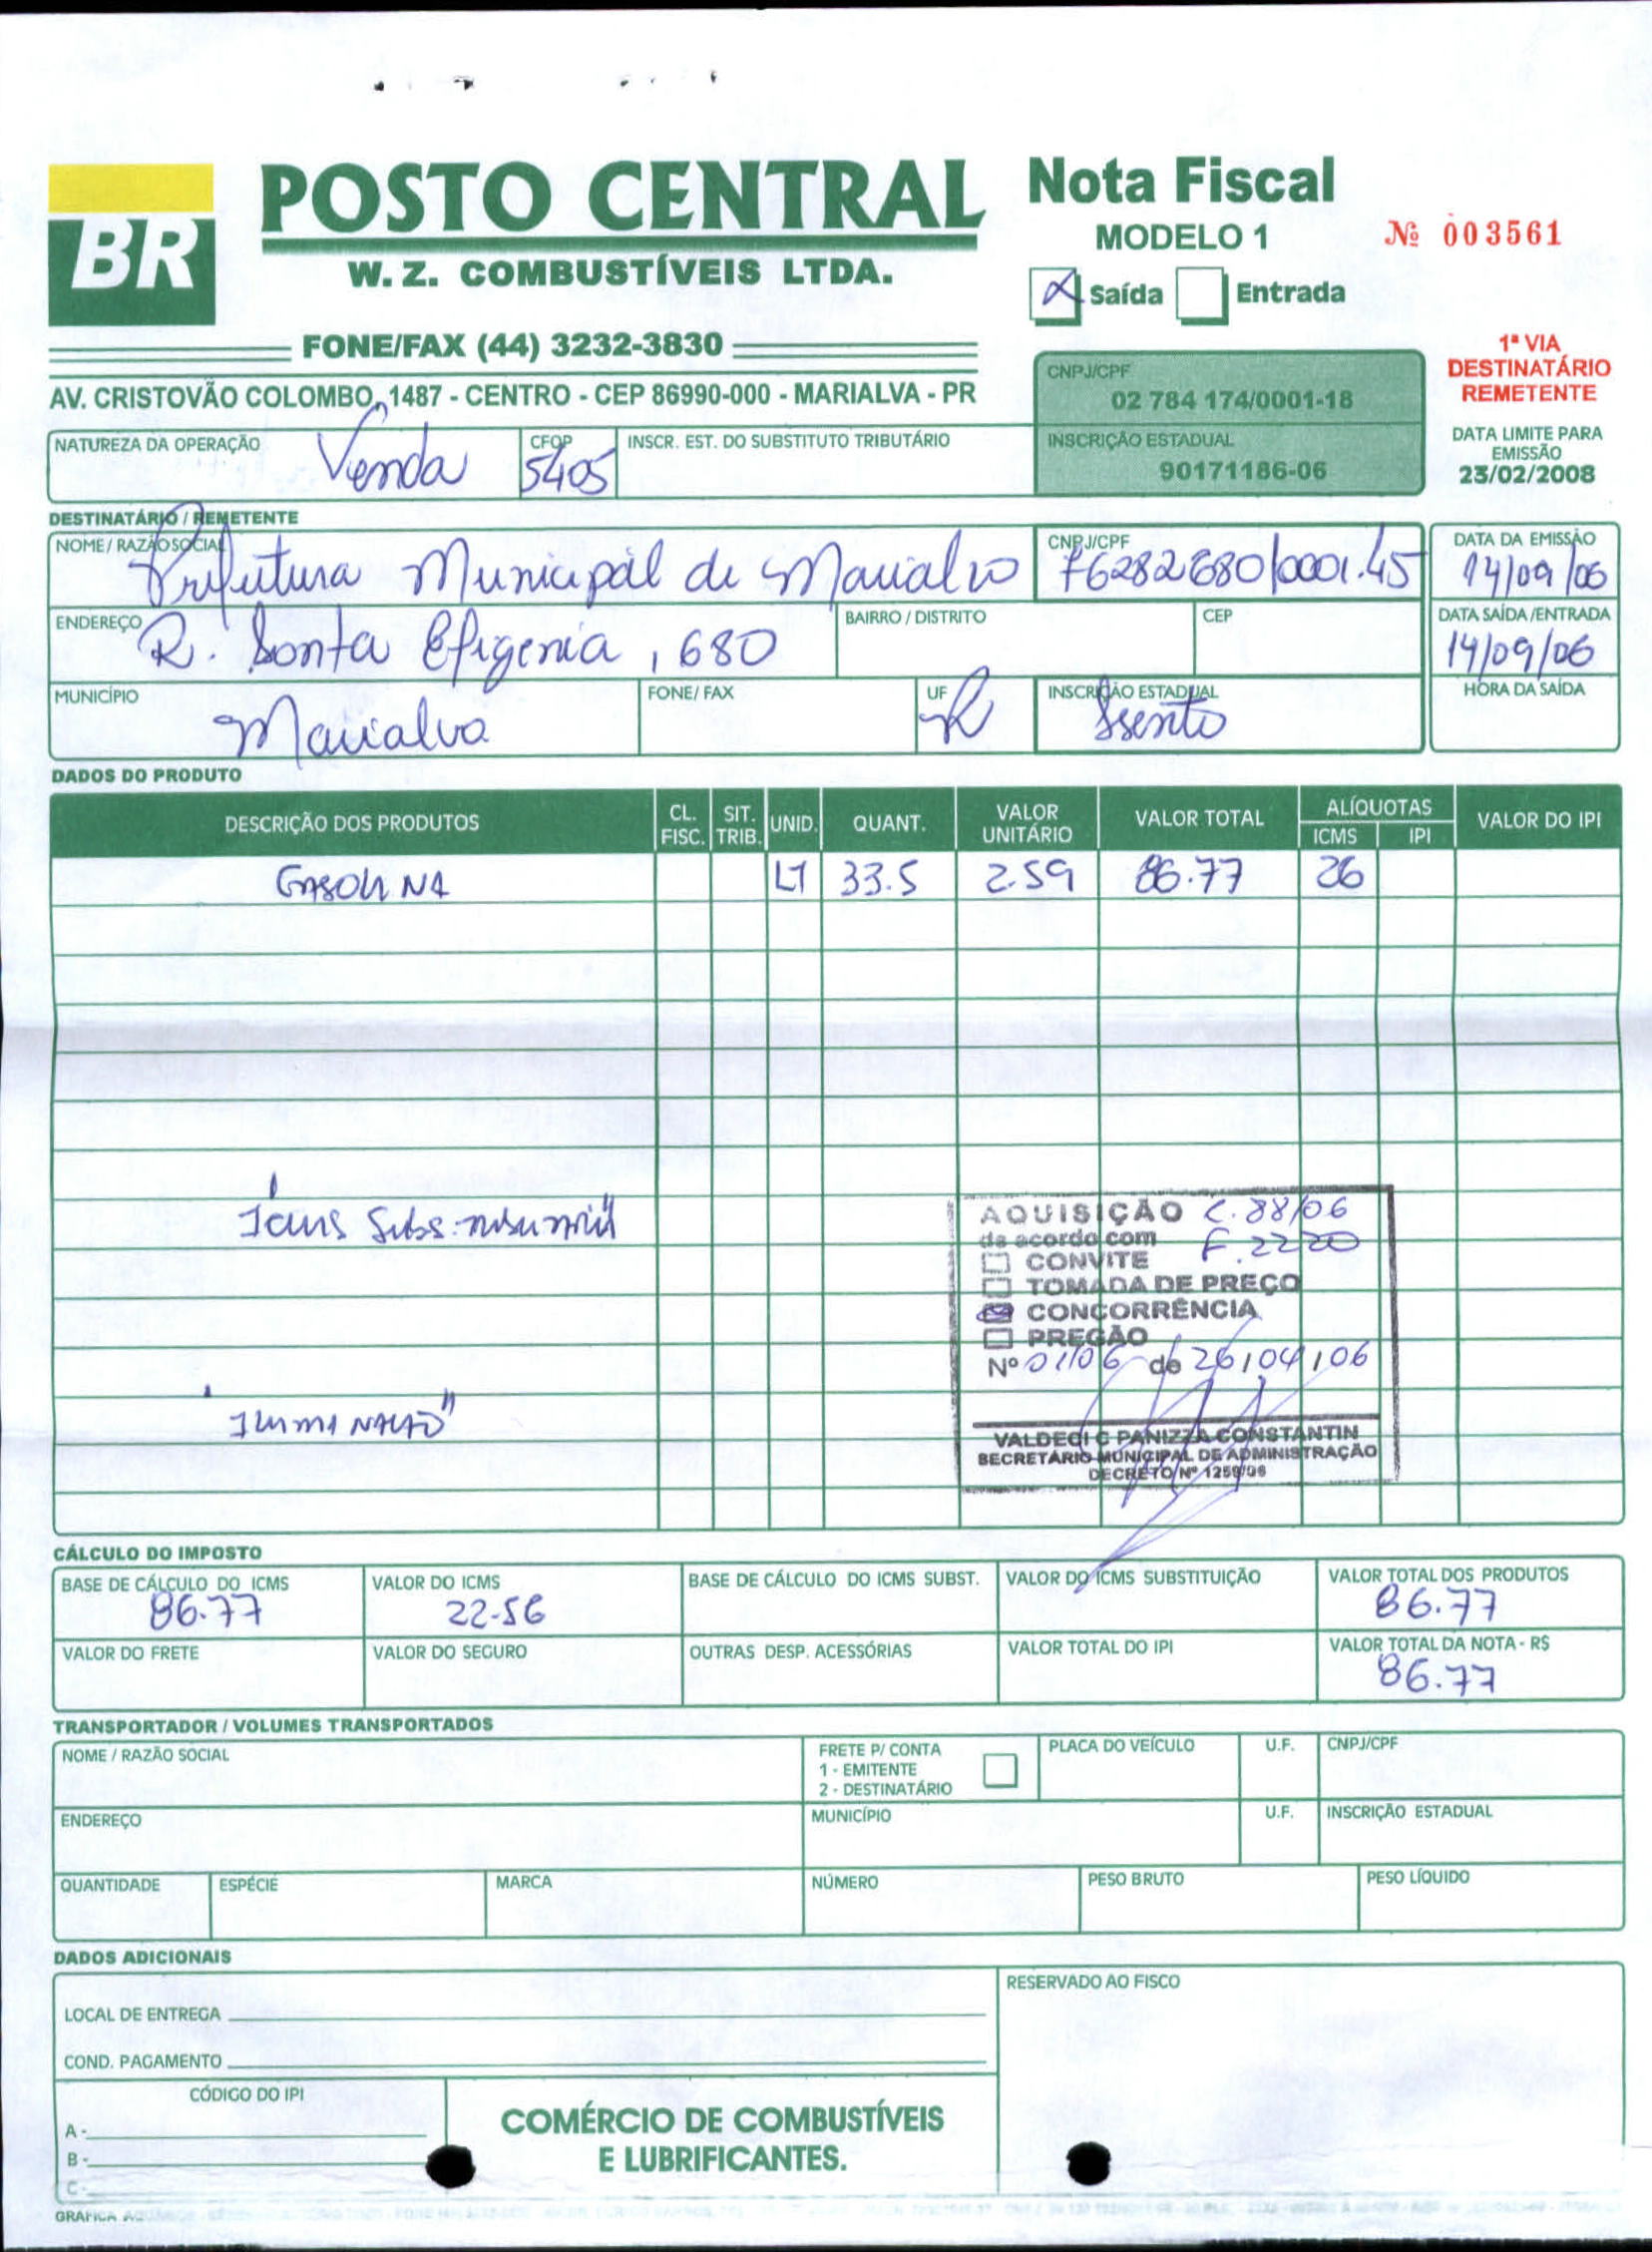 BR
POSTO CENTRAL
W. Z. COMBUSTÍVEIS LTDA.
FONE/FAX (44) 3232-3830
AV. CRISTOVÃO COLOMBO, 1487 - CENTRO - CEP 86990-000 - MARIALVA - PR
Nota Fiscal
MODELO 1
Nº 003561
X Saída Entrada
1ª VIA
DESTINATÁRIO
REMETENTE
CNPJ/CPF
02 784 174/0001-18
INSCRIÇÃO ESTADUAL
90171186-06
DATA LIMITE PARA
EMISSÃO
23/02/2008
NATUREZA DA OPERAÇÃO Venda CFOP 5405 INSCR. EST. DO SUBSTITUTO TRIBUTÁRIO
DESTINATÁRIO / REMETENTE
NOME / RAZÃO SOCIAL Prefeitura Municipal de Marialva CNPJ/CPF 76282680/0001.45 DATA DA EMISSÃO 14/09/06
ENDEREÇO R. Santa Efigenia, 680 BAIRRO / DISTRITO CEP DATA SAÍDA/ENTRADA 14/09/06
MUNICÍPIO Marialva FONE/ FAX UF PR INSCRIÇÃO ESTADUAL Isento HORA DA SAÍDA
DADOS DO PRODUTO
DESCRIÇÃO DOS PRODUTOS CL. FISC. SIT. TRIB. UNID. QUANT. VALOR UNITÁRIO VALOR TOTAL ALÍQUOTAS ICMS IPI VALOR DO IPI
GASOLINA LT 33.5 2.59 86.77 26
Icms Subs.
AQUISIÇÃO C. 88/06
de acordo com F. 2220
CONVITE
TOMADA DE PREÇO
CONCORRÊNCIA
PREGÃO
Nº 01/06 de 26/04/06
VALDECI C PANIZZA CONSTANTIN
SECRETÁRIO MUNICIPAL DE ADMINISTRAÇÃO
DECRETO Nº 1259/06
CÁLCULO DO IMPOSTO
BASE DE CÁLCULO DO ICMS VALOR DO ICMS BASE DE CÁLCULO DO ICMS SUBST. VALOR DO ICMS SUBSTITUIÇÃO VALOR TOTAL DOS PRODUTOS
86.77 22-56 86.77
VALOR DO FRETE VALOR DO SEGURO OUTRAS DESP. ACESSÓRIAS VALOR TOTAL DO IPI VALOR TOTAL DA NOTA - R$
86.77
TRANSPORTADOR / VOLUMES TRANSPORTADOS
NOME / RAZÃO SOCIAL FRETE P/ CONTA 1 - EMITENTE 2 - DESTINATÁRIO PLACA DO VEÍCULO U.F. CNPJ/CPF
ENDEREÇO MUNICÍPIO U.F. INSCRIÇÃO ESTADUAL
QUANTIDADE ESPÉCIE MARCA NÚMERO PESO BRUTO PESO LÍQUIDO
DADOS ADICIONAIS
RESERVADO AO FISCO
LOCAL DE ENTREGA
COND. PAGAMENTO
CÓDIGO DO IPI
A -
B -
C -
COMÉRCIO DE COMBUSTÍVEIS
E LUBRIFICANTES.